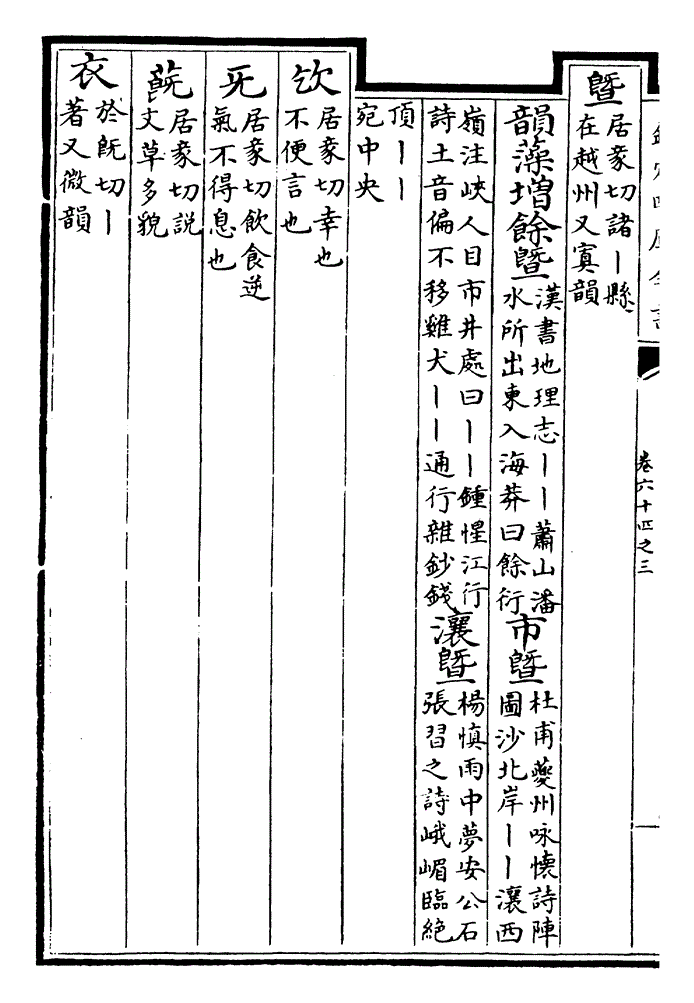 欽定四庫全書
卷六十四之三
曁居豙切諸丨縣
在越州又寘韻
韻藻增餘曁漢書地理志丨丨蕭山潘
水所出東入海莽曰餘衍
市曁杜甫夔州咏懷詩陣
圖沙北岸丨丨瀼西
嶺注峽人目市井處曰丨丨鍾惺江行
詩土音偏不移雞犬丨丨通行雜鈔錢
瀼曁楊慎雨中夢安公石
張習之詩峨嵋臨絶
頂丨丨
宛中央
居豙切幸也
不便言也
旡居豙切飲食逆
氣不得息也
蔇居豙切説
文草多貌
衣於既切丨
著又微韻